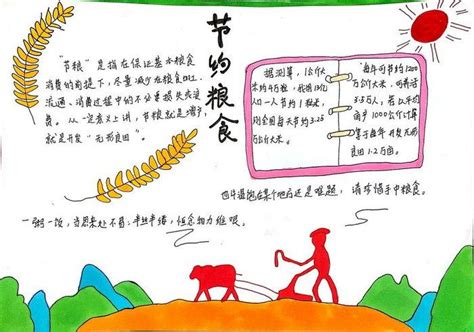 节约粮食
"节粮"是指在保证基本粮食
消费的前提下，尽量减少在粮食加工、
流通、消费过程中的不必要损失或浪
费。从一定意义上讲，节粮就是增产，
就是开发"无形良田"。
据测算，1公斤大
米约4万粒，我国13亿
人口一人一节约1粒米，
则全国每天节约3.25
万公斤大米。
每年可节约1200
万公斤大米，可养活
3.5万人，若以平均
亩产1000公斤计算
等于每年开发无形
良田1.2万亩。
温饱在某个地方还是难题，请珍惜手中粮食。
一粥一饭，当思来处不易；半丝半缕，恒念物力维艰。